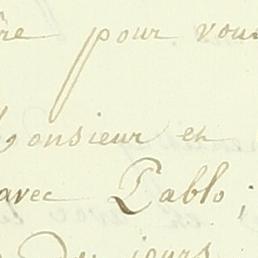 pour vous
Monsieur et
avec Pablo;
jours